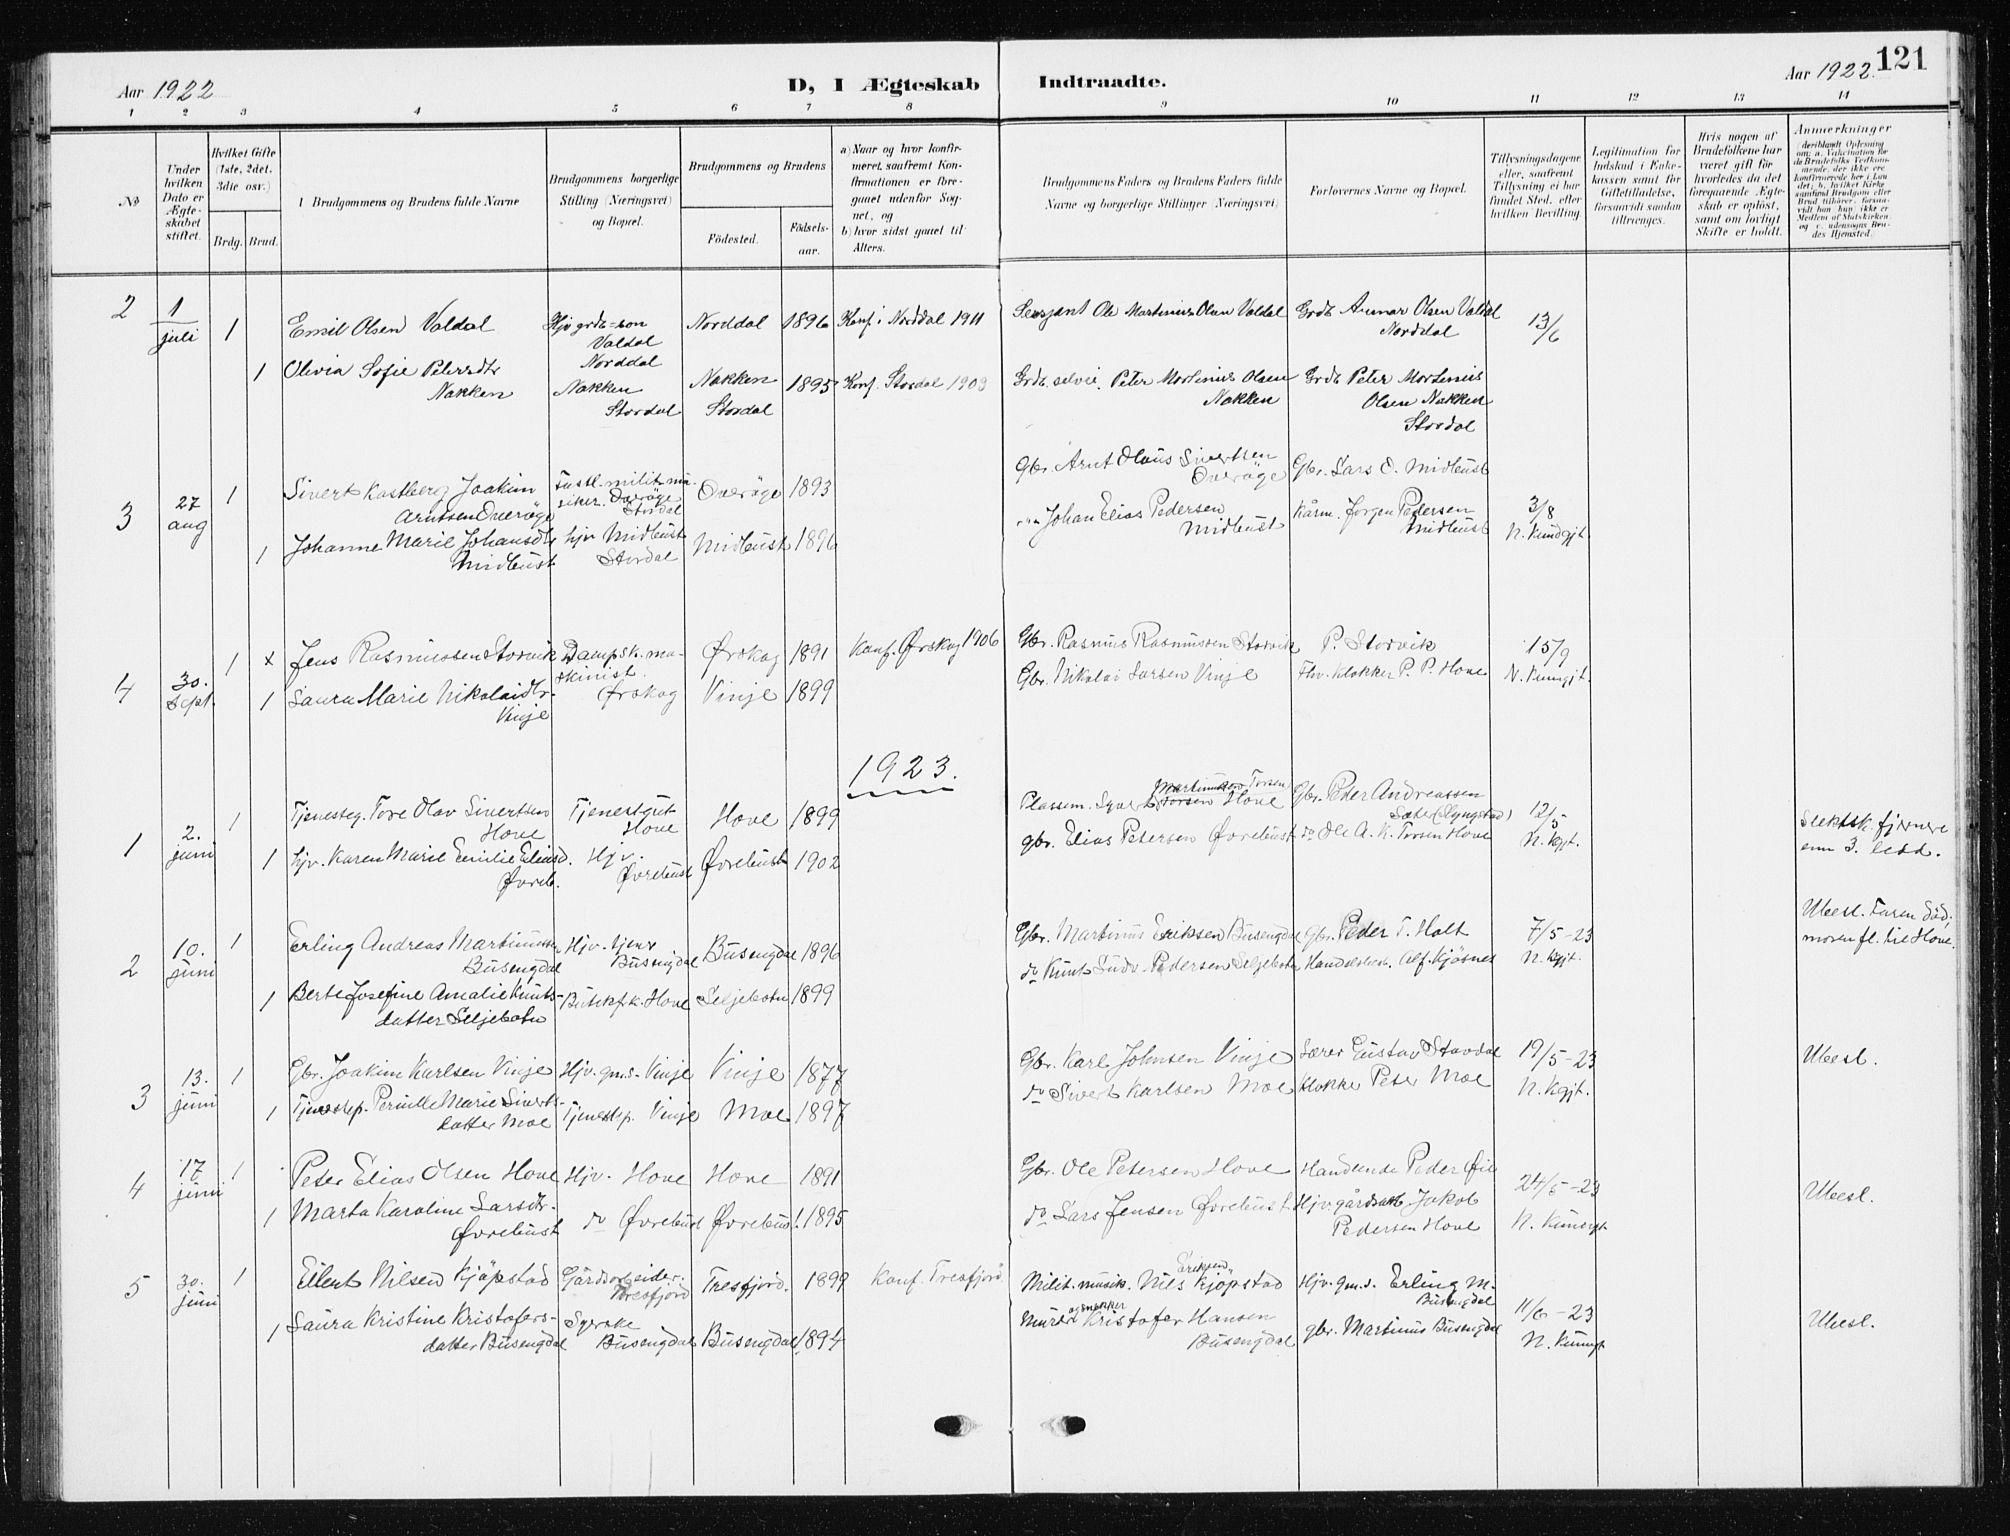 121
Aar 1922
D, I Ægteskab Indtraadte.
Aar 1922.
1 2 3 4 5 6 7 8 9 10 11 12 13 14
No
Under hvilken Dato er Ægteskabet stiftet.
Hvilket Gifte (1ste, 2det, 3die osv.)
Brdg. Brud.
Brudgommens og Brudens fulde Navne
Brudgommens borgerlige Stilling (Næringsvei) og Bopæl.
Brudgommens og Brudens
Fødested. Fødselsaar.
a) Naar og hvor konfirmeret, saafremt Konfirmationen er foregaaet udenfor Sognet, og
b) hvor sidst gaaet til Alters.
Brudgommens Faders og Brudens Faders fulde Navne og borgerlige Stillinger (Næringsvei)
Forlovernes Navne og Bopæl.
Tillysningsdagene eller, saafremt Tillysning ei har fundet Sted, efter hvilken Bevilling.
Legitimation for Indskud i Enkekassen samt for Giftetilladelse, forsaavidt saadan tiltrænges.
Hvis nogen af Brudefolkene har været gift før hvorledes da det foregaaende Ægteskab er opløst, samt om lovligt Skifte er holdt.
Anmerkninger
2 1 juli 1 Emil Olsen Valdal Hjv grdb=søn Valdal Norddal Norddal 1896 Konf. i Norddal 1911 Sersjant Ole Martinus Olsen Valdal Grdb Annar Olsen Valdal Norddal 13/6
1 Olivia Sofie Petersdtr Nakken Nakken Stordal Nakken Stordal 1895 Konf. Stordal 1909 Grdb. selvei. Peter Mortenius Olsen Nakken Grdb Peter Mortenius Olsen Nakken Stordal
3 27 aug 1 Sivert Kastberg Joakim Arntsen Overøye Fastl. milit. musiker. Overøye Stordal Overøye 1893 Gbr. Arnt Olaus Sivertsen Overøye Gbr. Lars E. Midtbust 3/8
1 Johanne Marie Johansdtr Midtbust hjv Midtbust Stordal Midtbust 1896 Johan Elias Pedersen Midtbust Kårm. Jørgen Pedersen Midtbust N. Kundgjt.
4 30. sept. 1 x Jens Rasmussen Storvik Dampsk. maskinist. Ørskog Ørskog 1891 Konf. Ørskog 1906 Gbr. Rasmus Rasmussen Storvik P. Storvik 15/9
1 Laura Marie Nikolaidtr. Vinje Vinje 1899 Gbr. Nikolai Larsen Vinje Fhv. Klokker P. P. Hove N. Kunngjt.
1923.
1 2. juni 1 Tjenesteg. Tore Olav Sivertsen Hove Tjenestgut Hove Hove 1899 Plassm. Syvert Torsen Hove Gbr. Peder Andreassen Sæter (Slyngstad) 12/5 Slektsk. fjernere enn 3. ledd.
1 hjv. Karen Marie Emilie Eliasd. Øvreb. Hjv. Øvrebust Øvrebust 1902 gbr. Elias Petersen Øvrebust do Ole A. K. Torsen Hove N. kgjt.
2 10. juni 1 Erling Andreas Martinussen Busengdal Hjv. tjenr Busengdal Busengdal 1896 Gbr. Martinus Eriksen Busengdal Gbr. Peder T. Holt 7/5-23 Ubesl. Faren død, moren fl. til Hove.
1 Berte Josefine Amalie Knutsdatter Seljebotn Butikfk. Hove Seljebotn 1899 do Knut Ludv. Pedersen Seljebotn Handelsbest. Alf. Kjøsnes N. kgjt.
3 13. juni 1 Gbr. Joakim Karlsen Vinje Hjv. gm.s. Vinje Vinje 1877 Gbr. Karl Johnsen Vinje Lærer Gustav Stavdal 19/5-23 Ubesl.
1 Tjenestep. Pernille Marie Sivertsdatter Moe Tjenestep. Vinje Moe 1897 do Sivert Karlsen Moe Klokker Peter Moe N. kgjt.
4 17 juni 1 Peter Elias Olsen Hove Hjv. Hove Hove 1891 Gbr. Ole Petersen Hove Handlende Peder Øie 24/5-23 Ubesl.
1 Marta Karoline Larsdtr. Øvrebust do Øvrebust Øvrebust 1895 do Lars Jensen Øvrebust Hjv. gårdsarb Jakob Pedersen Hove N. Kunngt.
5 30. juni 1 Eilert Nilsen Kjøpstad Gårdsarbeider. Tresfjord Tresfjord. 1899 Konf. Tresfjord Milit. musik. Nils Eriksen Kjøpstad Hjv. gm. s. Erling M. Busengdal 11/6-23 Ubesl.
1 Laura Kristine Kristofersdatter Busengdal Syerske Busengdal Busengdal 1894 Murer og snekker Kristofer Hansen Busengdal gbr. Martinus Busengdal N. Kunngt